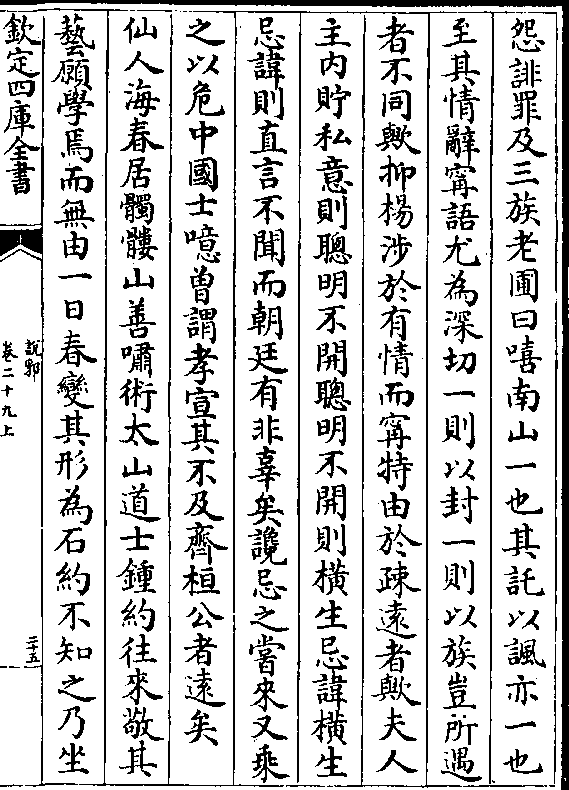 怨誹罪及三族老圃曰嘻南山一也其託以諷亦一也
至其情辭寗語尤為深切一則以封一則以族豈所遇
者不同歟抑楊涉於有情而寗特由於疎遠者歟夫人
主内貯私意則聰明不開聰明不開則横生忌諱横生
忌諱則直言不聞而朝廷有非辜矣讒忌之當來又乘
之以危中國士噫曽謂孝宣其不及齊桓公者逺矣
仙人海春居髑髏山善嘯術太山道士鍾約往來敬其
藝願學焉而無由一日春變其形為石約不知之乃坐
欽定四庫全書
說郛
卷二十九上
二十五